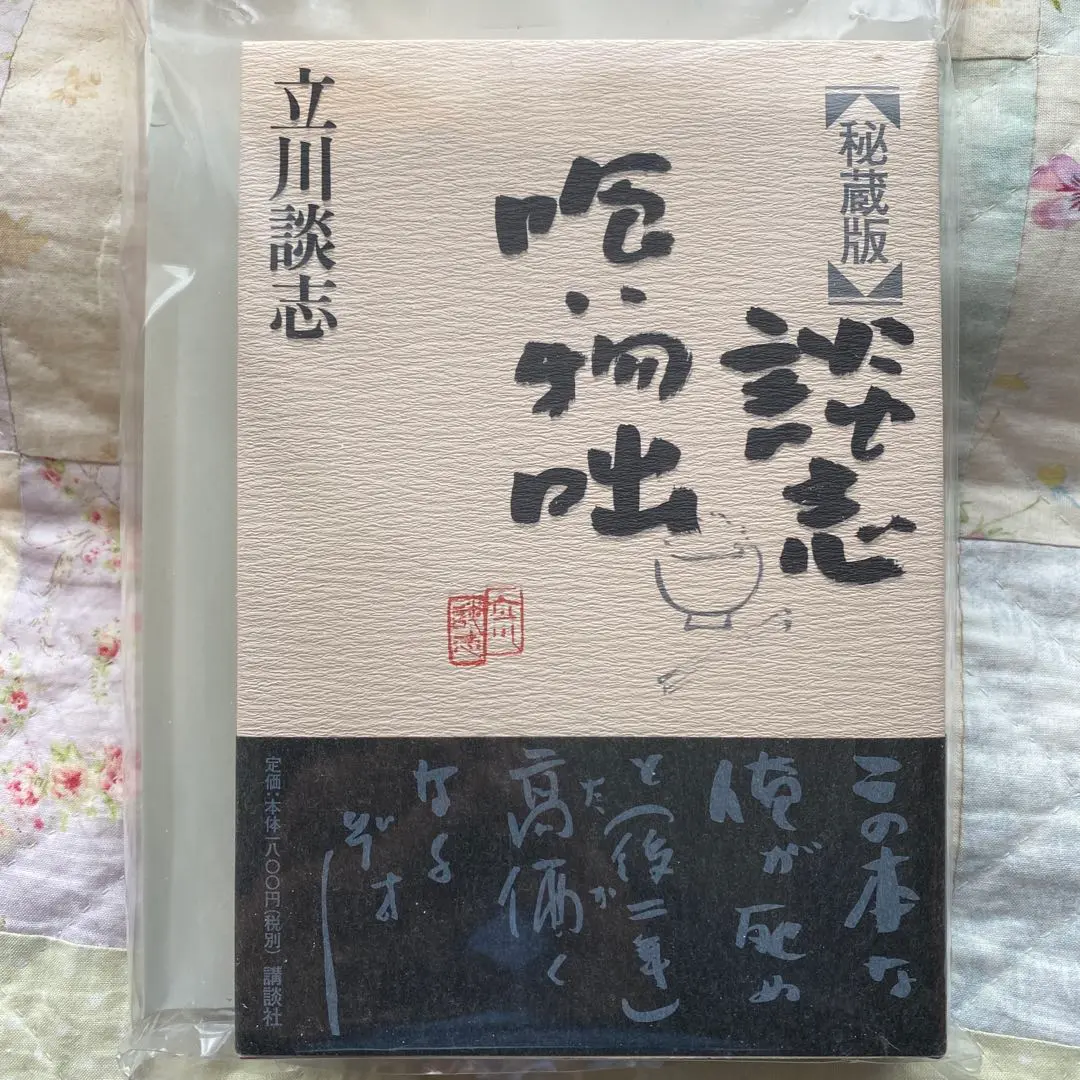 【秘蔵版】
談志
喰い物咄
立川談志
立川
談志
この本な
俺が死ぬ
と(後二年)
高価く
たか
なる
ぞオー
定価：本体一八〇〇円(税別) 講談社